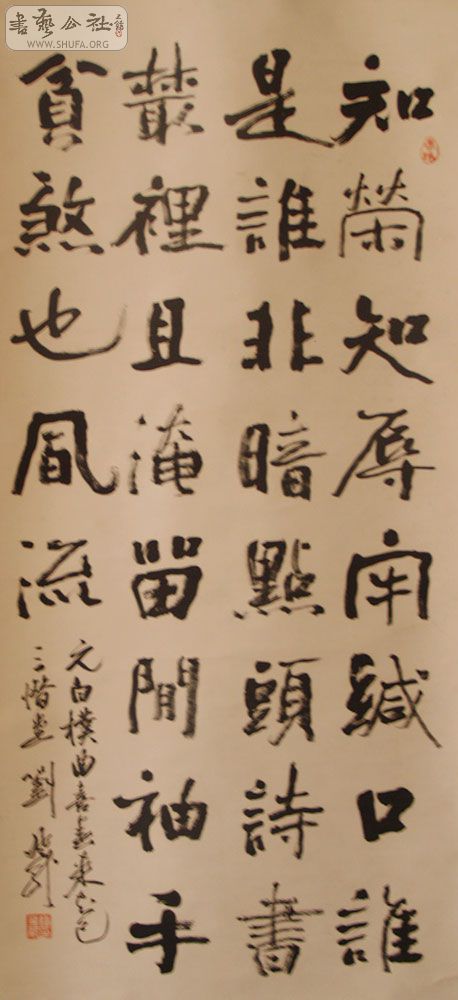 書藝公社
WWW.SHUFA.ORG
知榮知辱牢緘口誰
是誰非暗點頭詩書
叢裡且淹留閒袖手
貧煞也風流
元白樸曲喜春来
三惜堂劉